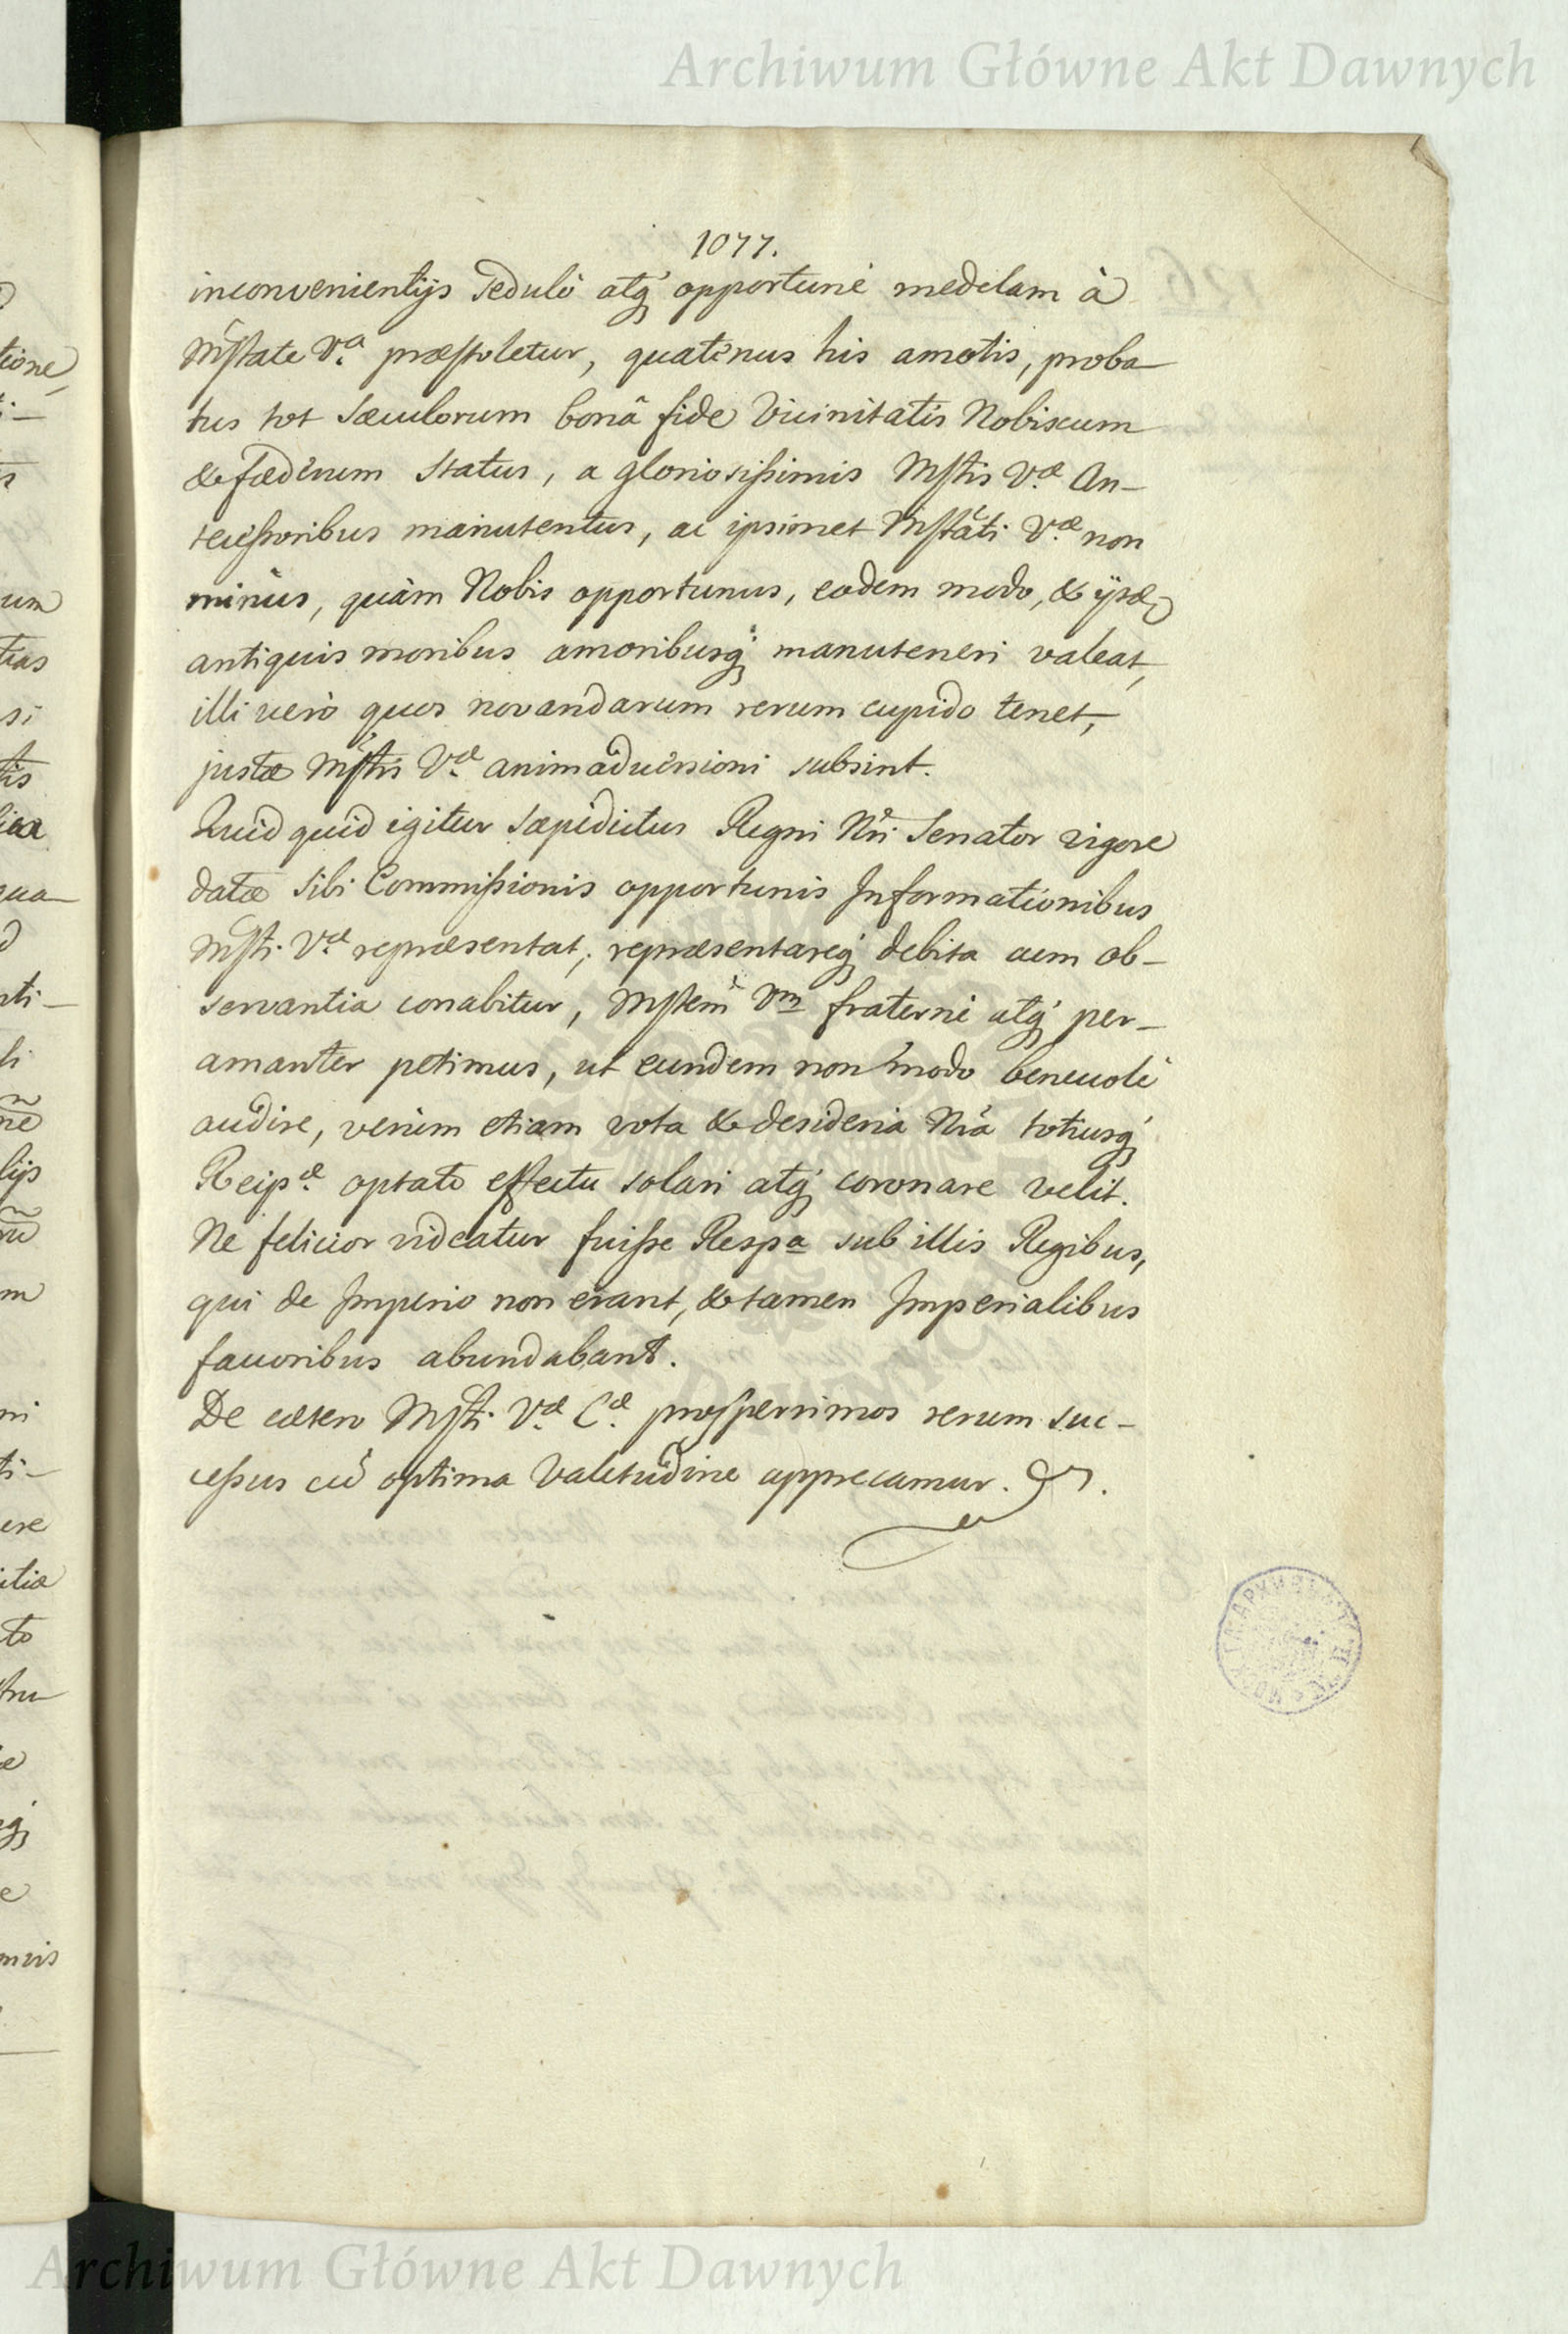 Archiwum Główne Akt Dawnych
1077.
inconvenientijs sedulò atq́ opportunè medelam à
Mstate V.ᵃ præstoletur, quatenus his amotis, proba-
tus tot sæculorum bonâ fide Vicinitatis Nobiscum
& fæderum Status, a gloriosissimis Mstis V.æ An-
tecessoribus manutentus, ac ipsimet Mstati V.æ non
minùs, quàm Nobis opportunus, eodem modo, & ijsd
antiquis moribus amoribusq́ manuteneri valeat,
illi verò quos novandarum rerum cupido tenet,
justæ Mstis V.æ animadversioni subsint.
Quid quid igitur sæpedictus Regni Nri Senator vigore
datæ sibi Commissionis opportunis Informationibus
Msti V.æ repræsentat, repræsentareq́ debita cum ob-
servantia conabitur, Mstem Vm fraternè atq́ per-
amanter petimus, ut eundem non modo benevolè
audire, verùm etiam vota & desideria Nra totiusq́
Reip.æ optato effectu solari atq́ coronare velit.
Ne felicior videatur fuisse Respa sub illis Regibus,
qui de Imperio non erant, & tamen Imperialibus
favoribus abundabant.
De cætero Msti V.æ C.æ prosperrimos rerum suc-
cessus cū optima Valetudine apprecamur.
Archiwum Główne Akt Dawnych